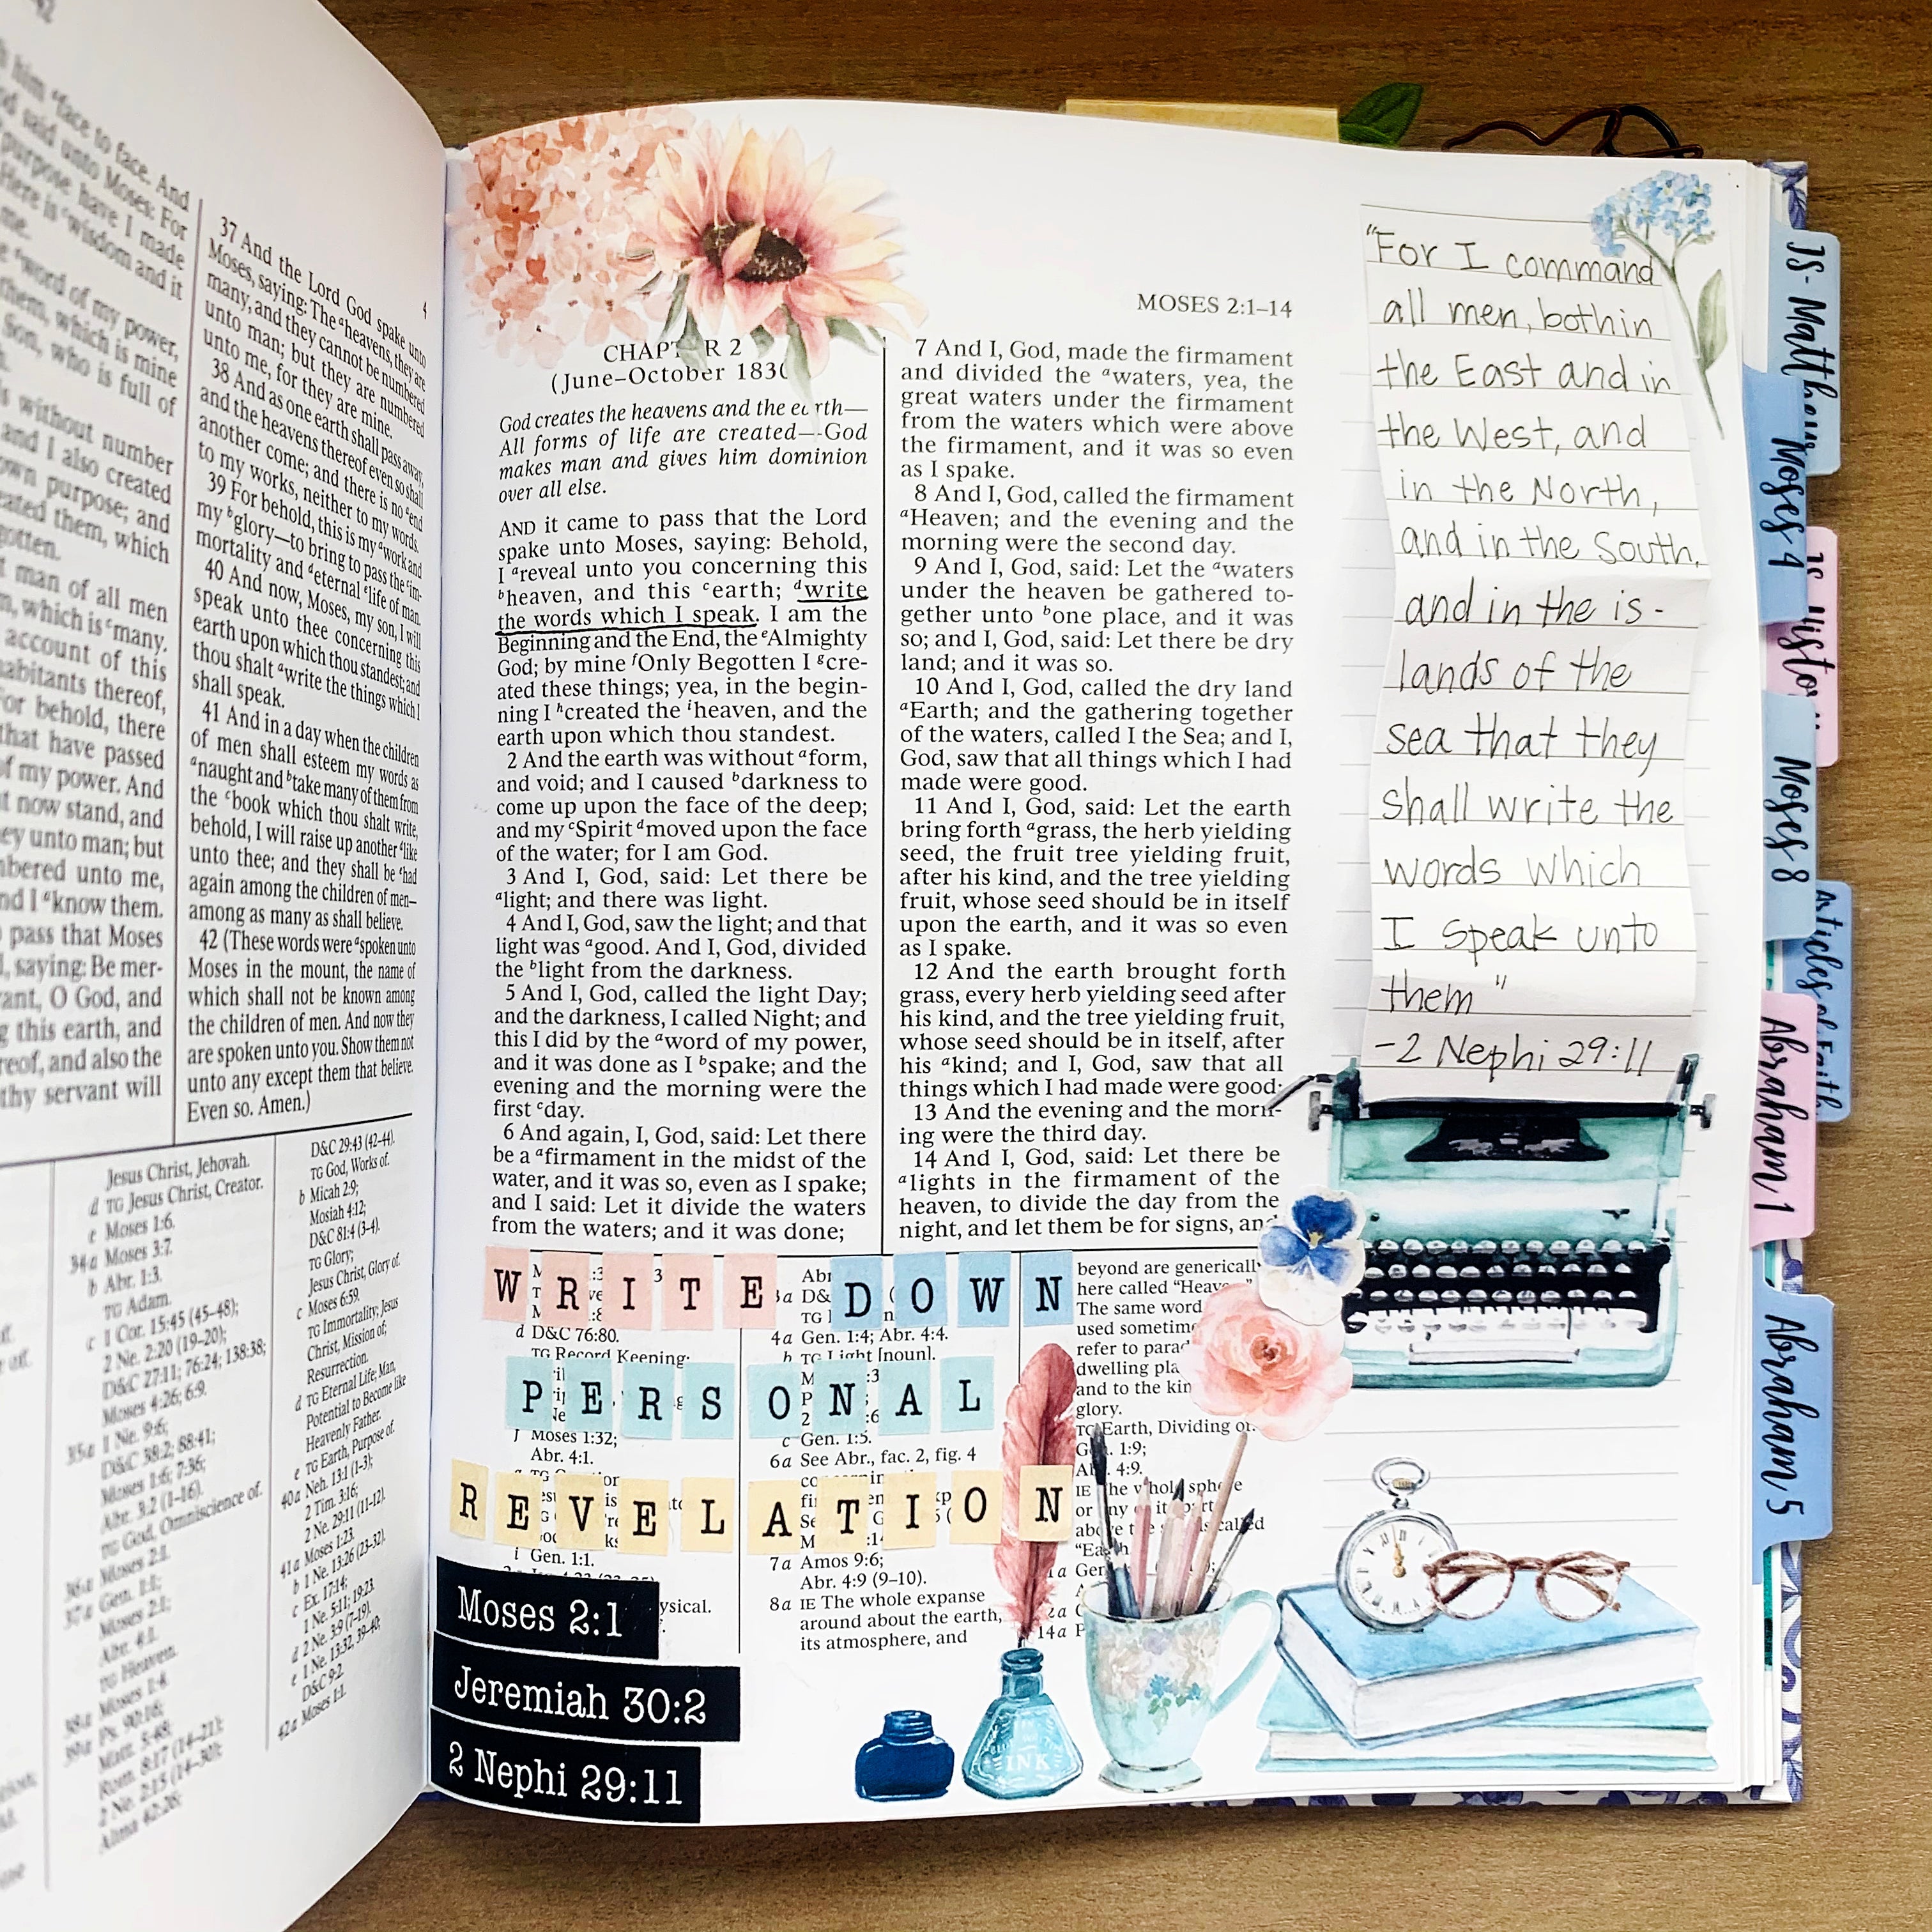 him ᵃface to face. And
said unto Moses: For
purpose have I made
Here is ᶜwisdom and it
me.
ᵃword of my power,
them, which is mine
Son, who is full of
without number
and I also created
own purpose; and
created them, which
man of all men
which is ᶜmany.
account of this
inhabitants thereof,
For behold, there
that have passed
of my power. And
now stand, and
unto man; but
numbered unto me,
and I ᵃknow them.
pass that Moses
saying: Be mer-
O God, and
this earth, and
and also the
thy servant will
4
37 And the Lord God spake unto
Moses, saying: The ᵃheavens, they are
many, and they cannot be numbered
unto man; but they are numbered
unto me, for they are mine.
38 And as one earth shall pass away,
and the heavens thereof even so shall
another come; and there is no ᵃend
to my works, neither to my words.
39 For behold, this is my ᵃwork and
my ᵇglory—to bring to pass the ᶜim-
mortality and ᵈeternal ᵉlife of man.
40 And now, Moses, my son, I will
speak unto thee concerning this
earth upon which thou standest; and
thou shalt ᵃwrite the things which I
shall speak.
41 And in a day when the children
of men shall esteem my words as
ᵃnaught and ᵇtake many of them from
the ᶜbook which thou shalt write,
behold, I will raise up another ᵈlike
unto thee; and they shall be ᵉhad
again among the children of men—
among as many as shall believe.
42 (These words were ᵃspoken unto
Moses in the mount, the name of
which shall not be known among
the children of men. And now they
are spoken unto you. Show them not
unto any except them that believe.
Even so. Amen.)
Jesus Christ, Jehovah.
d TG Jesus Christ, Creator.
e Moses 1:6.
34a Moses 3:7.
b Abr. 1:3.
TG Adam.
c 1 Cor. 15:45 (45–48);
2 Ne. 2:20 (19–20);
D&C 27:11; 76:24; 138:38;
Moses 4:26; 6:9.
35a 1 Ne. 9:6;
D&C 38:2; 88:41;
Moses 1:6; 7:36;
Abr. 3:2 (1–16).
TG God, Omniscience of.
36a Moses 2:1.
37a Gen. 1:1;
Moses 2:1;
Abr. 4:1.
TG Heaven.
38a Moses 1:4.
39a Ps. 90:16;
Matt. 5:48;
Rom. 8:17 (14–21);
2 Ne. 2:15 (14–30);
Alma 42:26;
D&C 29:43 (42–44).
TG God, Works of.
b Micah 2:9;
Mosiah 4:12;
D&C 81:4 (3–4).
TG Glory;
Jesus Christ, Glory of.
c Moses 6:59.
TG Immortality; Jesus
Christ, Mission of;
Resurrection.
d TG Eternal Life; Man,
Potential to Become like
Heavenly Father.
e TG Earth, Purpose of.
40a Neh. 13:1 (1–3);
2 Tim. 3:16;
2 Ne. 29:11 (11–12).
41a Moses 1:23.
b 1 Ne. 13:26 (23–32).
c Ex. 17:14;
1 Ne. 5:11; 19:23.
d 2 Ne. 3:9 (7–19).
e 1 Ne. 13:32, 39–40;
D&C 9:2.
42a Moses 1:1.
MOSES 2:1–14
CHAPTER 2
(June–October 1830
God creates the heavens and the earth—
All forms of life are created—God
makes man and gives him dominion
over all else.
AND it came to pass that the Lord
spake unto Moses, saying: Behold,
I ᵃreveal unto you concerning this
ᵇheaven, and this ᶜearth; ᵈwrite
the words which I speak. I am the
Beginning and the End, the ᵉAlmighty
God; by mine ᶠOnly Begotten I ᵍcre-
ated these things; yea, in the begin-
ning I ʰcreated the ⁱheaven, and the
earth upon which thou standest.
2 And the earth was without ᵃform,
and void; and I caused ᵇdarkness to
come up upon the face of the deep;
and my ᶜSpirit ᵈmoved upon the face
of the water; for I am God.
3 And I, God, said: Let there be
ᵃlight; and there was light.
4 And I, God, saw the light; and that
light was ᵃgood. And I, God, divided
the ᵇlight from the darkness.
5 And I, God, called the light Day;
and the darkness, I called Night; and
this I did by the ᵃword of my power,
and it was done as I ᵇspake; and the
evening and the morning were the
first ᶜday.
6 And again, I, God, said: Let there
be a ᵃfirmament in the midst of the
water, and it was so, even as I spake;
and I said: Let it divide the waters
from the waters; and it was done;
7 And I, God, made the firmament
and divided the ᵃwaters, yea, the
great waters under the firmament
from the waters which were above
the firmament, and it was so even
as I spake.
8 And I, God, called the firmament
ᵃHeaven; and the evening and the
morning were the second day.
9 And I, God, said: Let the ᵃwaters
under the heaven be gathered to-
gether unto ᵇone place, and it was
so; and I, God, said: Let there be dry
land; and it was so.
10 And I, God, called the dry land
ᵃEarth; and the gathering together
of the waters, called I the Sea; and I,
God, saw that all things which I had
made were good.
11 And I, God, said: Let the earth
bring forth ᵃgrass, the herb yielding
seed, the fruit tree yielding fruit,
after his kind, and the tree yielding
fruit, whose seed should be in itself
upon the earth, and it was so even
as I spake.
12 And the earth brought forth
grass, every herb yielding seed after
his kind, and the tree yielding fruit,
whose seed should be in itself, after
his ᵃkind; and I, God, saw that all
things which I had made were good;
13 And the evening and the morn-
ing were the third day.
14 And I, God, said: Let there be
ᵃlights in the firmament of the
heaven, to divide the day from the
night, and let them be for signs, and
"For I command
all men, both in
the East and in
the West, and
in the North,
and in the South,
and in the is-
lands of the
sea that they
shall write the
words which
I speak unto
them"
-2 Nephi 29:11
WRITE DOWN
PERSONAL
REVELATION
d D&C 76:80.
TG Record Keeping;
Moses 1:32;
Abr. 4:1.
i Gen. 1:1.
ysical.
4a Gen. 1:4; Abr. 4:4.
b TG Light [noun].
c Gen. 1:5.
6a See Abr., fac. 2, fig. 4
7a Amos 9:6;
Abr. 4:9 (9–10).
8a IE The whole expanse
around about the earth,
its atmosphere, and
beyond are generically
here called "Heave
The same word
used sometim
refer to parad
dwelling pla
and to the kin
glory.
TG Earth, Dividing of.
1:9;
4:9.
Moses 2:1
Jeremiah 30:2
2 Nephi 29:11
INK
JS-Matthew
Moses 4
JS-Histo
Moses 8
Articles of Faith
Abraham 1
Abraham 5